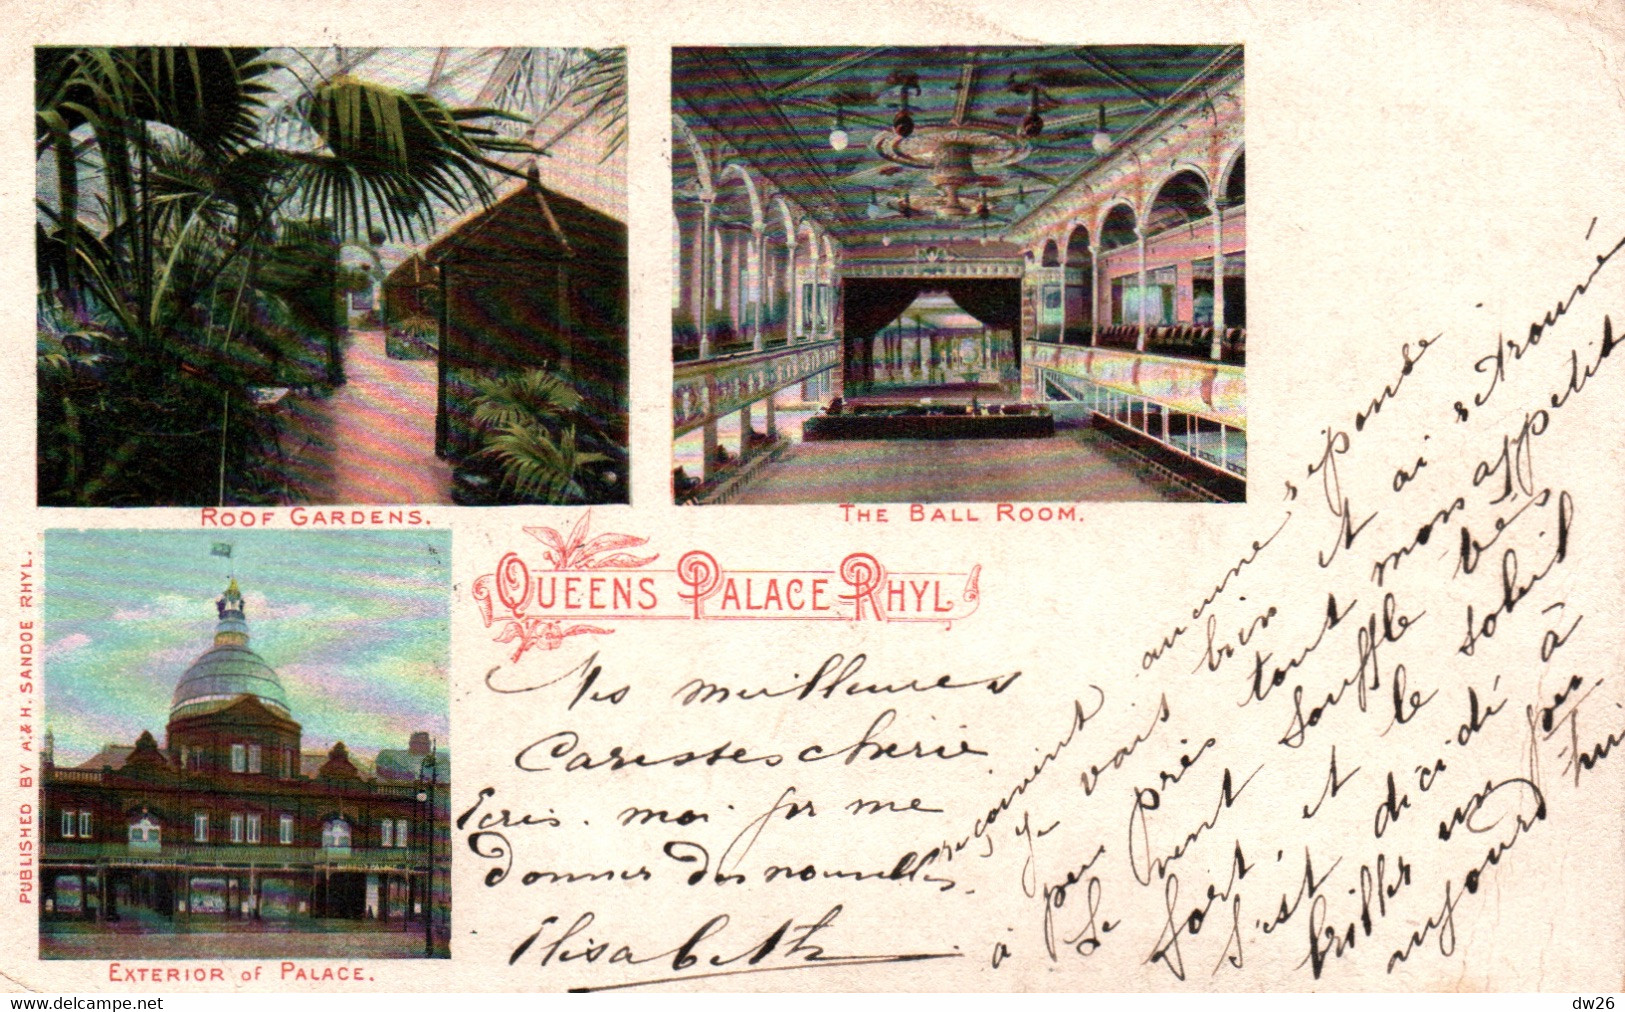 ROOF GARDENS.
THE BALL ROOM.
QUEENS PALACE RHYL
EXTERIOR OF PALACE.
PUBLISHED BY A. & H. SANDOE RHYL.
Mes meilleures
Caresses cherie
Ecris. moi pr me
donner des nouvelles.
Elisabeth
recevant aucune réponse
Je vais bien et ai retrouvé
à peu près tout mon appetit
Le vent souffle très
fort et le soleil
s'est décidé à
briller un peu
aujourd'hui
www.delcampe.net
dw26